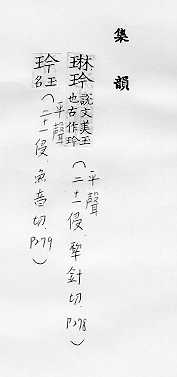 集韻
琳玪說文美玉也古作玪(平聲二十一侵.犂針切.P278)
玪玉名(平聲二十一侵.魚音切.P279)